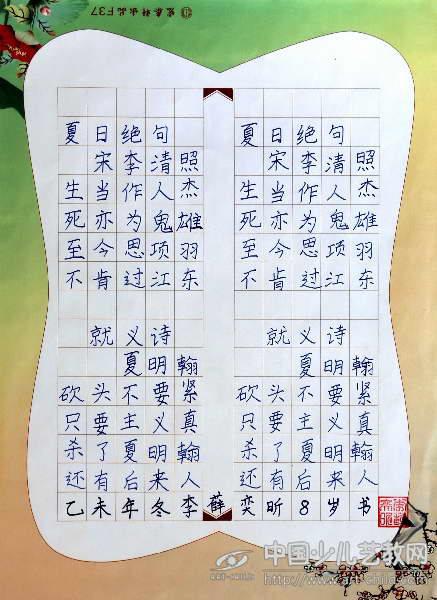 夏日绝句
宋李清照
生当作人杰
死亦为鬼雄
至今思项羽
不肯过江东
就义诗
夏明翰
砍头不要紧
只要主义真
杀了夏明翰
还有后来人
夏日绝句
宋李清照
生当作人杰
死亦为鬼雄
至今思项羽
不肯过江东
就义诗
夏明翰
砍头不要紧
只要主义真
杀了夏明翰
还有后来人
乙未年冬李薛奕昕8岁书
中国少儿艺教网